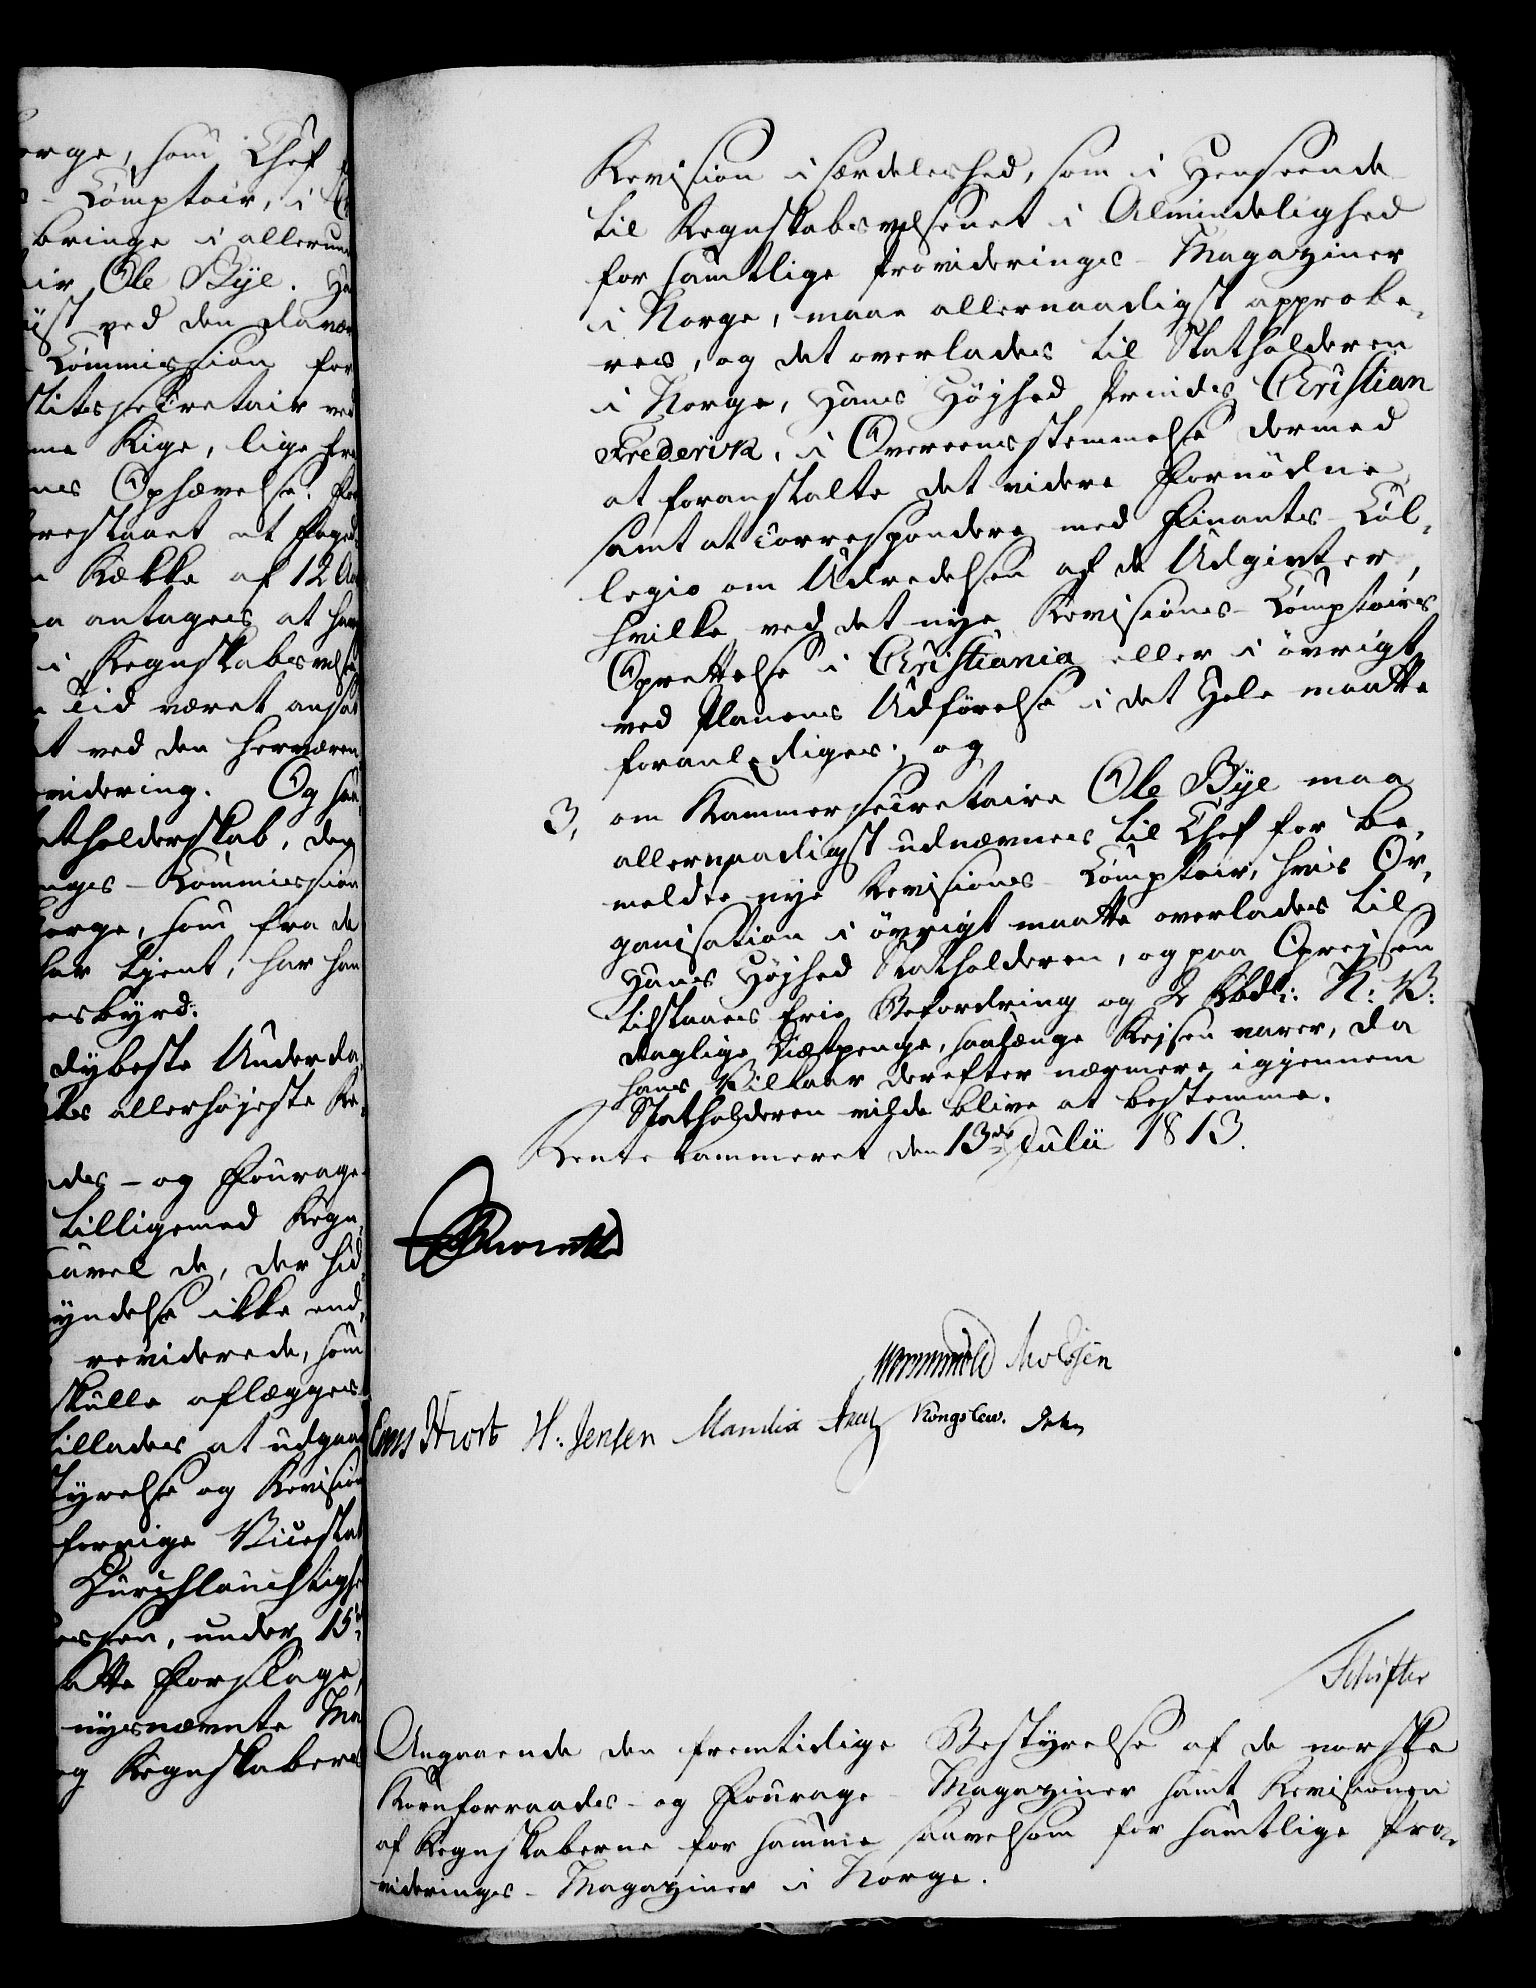 orge, som Chef
Comptoir, i
bringe i allerun
Ole Bÿe.
ved den davær
Commission for
titssecretair ved
Rige, lige fra
Ophævelse.
restaaet et
Række af 12
antages at
i Regnskabsvæse
Tid været ansat
t ved den herværen
videring. Og
tholderskab, den
nges-Commission
orge, som fra de
har tjent, har han
esbyrd:
dybeste Underda
allerhøjeste Re
des- og Fourage
tilligemed Regn
saavel de, der hid
yndelse ikke end
reviderede, som
skulle aflægges
tillades at udgaae
tyrelse og Revision
forrige Vicestat
Durchlauchtighe
essen, under 15de
atte Forslage,
nysnævnte Ma
og Regnskabers
Revision i særdeleshed, som i Henseende
til Regnskabsvæsenet i Almindelighed
for samtlige Provideerings-Magaziner
i Norge, maae allernaadigst approbe,
res, og det overlades til Statholderen
i Norge, Hans Højhed Prinds Christian
Frederik, i Overeensstemmelse dermed
at foranstalte det videre Fornødne,
samt at correspondere med Finants-Col,
legio om Udredelsen af de Udgivter,
hvilke ved det nye Revisions-Comptoirs
Oprettelse i Christiania eller i øvrigt
ved Planens Udførelse i det Hele maatte
foranlediges; og
3, om Kammersecretaire Ole Bÿe maa
allernaadigst udnævnes til Chef for be,
meldte nye Revisions-Comptoir, hvis Or,
ganisation i øvrigt maatte overlades til
Hans Højhed Statholderen, og paa Oprejsen
tilstaaes frie Befordring og 2 Rbdlr: N: V:
daglige Diætpenge, saalænge Rejsen varer, da
hans Vilkaar derefter nærmere igjennem
Statholderen vilde blive at bestemme.
Rentekammeret den 13de Julii 1813.
Wormskiold Moessen
Hvort H: Jensen Mandix Kongslew.
Schifter
Angaaende den fremtidige Bestyrelse af de norske
Kornforraads- og Fourage-Magaziner samt Revisionen
af Regnskaberne for samme saavelsom for samtlige Pro,
viderings-Magaziner i Norge.